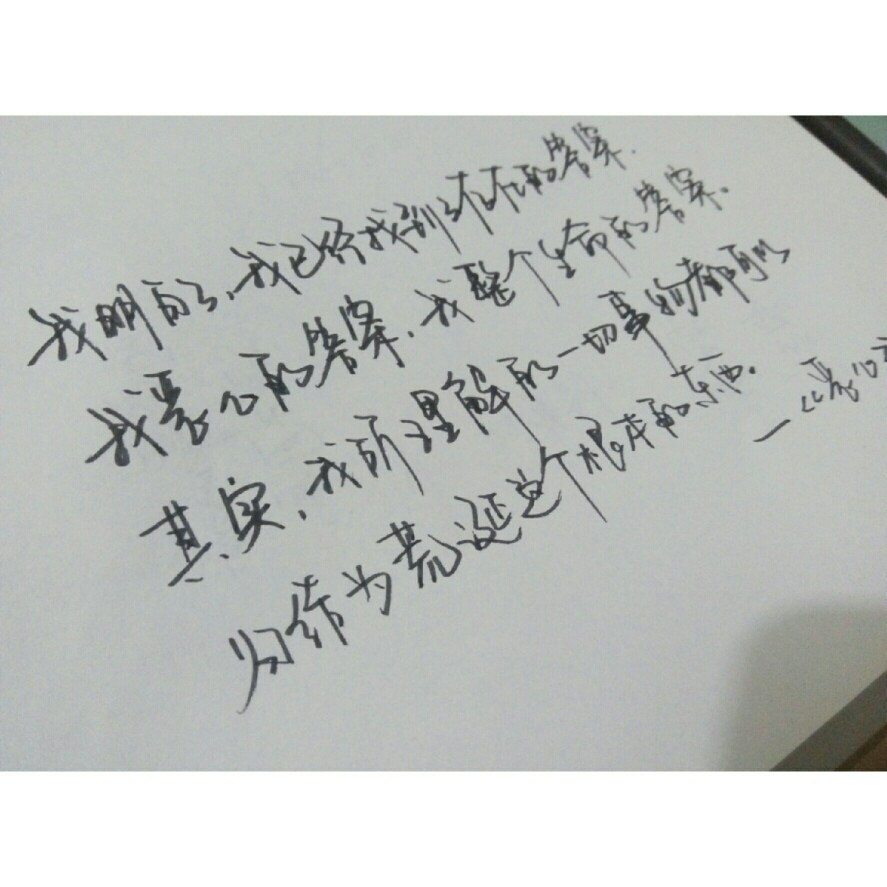 我明白了,我已经找到了存在的答案.
我恶心的答案,我整个生命的答案。
其实,我所理解的一切事物都可以
归结为荒诞这个根本的东西。
—《恶心